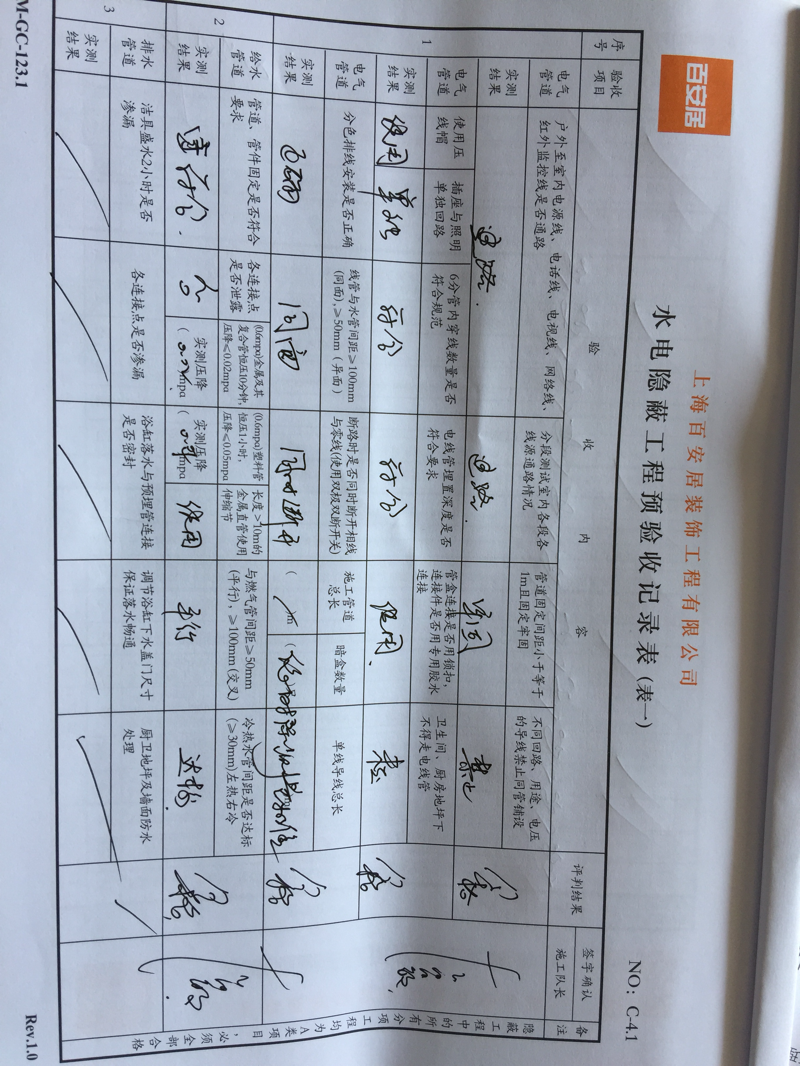 百安居
上海百安居装饰工程有限公司
水电隐蔽工程预验收记录表(表一)
NO: C-4.1
序号
验收项目
验 收 内 容
评判结果
签字确认
施工队长
备注
1
电气管道
户外至室内电源线、电话线、电视线、网络线、红外监控线是否通路
分段测试室内各段各线源通路情况
管道固定间距小于等于1m且固定牢固
不同回路、用途、电压的导线禁止同管铺设
实测结果
通路.
通路.
牢固
禁止
合格
电气管道
使用压线帽
插座与照明单独回路
6分管内穿线数量是否符合规范
电线管埋置深度是否符合要求
管盒连接是否用锁扣，连接件是否用专用胶水连接
卫生间、厨房地坪下不得走电线管
实测结果
使用
单独
符合
符合
使用.
合格
电气管道
分色排线安装是否正确
线管与水管间距≥100mm(同面),≥50mm(异面)
断路时是否同时断开相线与零线(使用双极双断开关)
施工管道总长
暗盒数量
单线导线总长
实测结果
正确
同面
同时断开
合格
2
给水管道
管道、管件固定是否符合要求
各连接点是否泄露
(0.6mpa)金属及其复合管恒压10分钟，压降≤0.02mpa
(0.6mpa)塑料管恒压1小时，压降≤0.05mpa
长度>10m的金属直管使用伸缩节
与燃气管间距≥50mm(平行)，≥100mm(交叉)
冷热水管间距是否达标(≥30mm)左热右冷
实测结果
符合.
否
实测压降
mpa
实测压降
mpa
使用
平行
达标.
合格
3
排水管道
洁具盛水2小时是否渗漏
各连接点是否渗漏
浴缸落水与预埋管连接是否密封
调节浴缸下水盖门尺寸保证落水畅通
厨卫地坪及墙面防水处理
实测结果
隐蔽工程中的所有分项工程均为A类项目，必须全部合格
M-GC-123.1
Rev.1.0